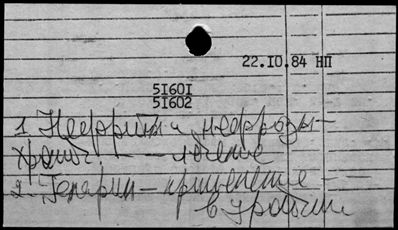 22.10.84 НП
51601
51602
1. Нефриты и нефрозы –
хронич. — лечение
2. Гепарин – применение —
в урологии